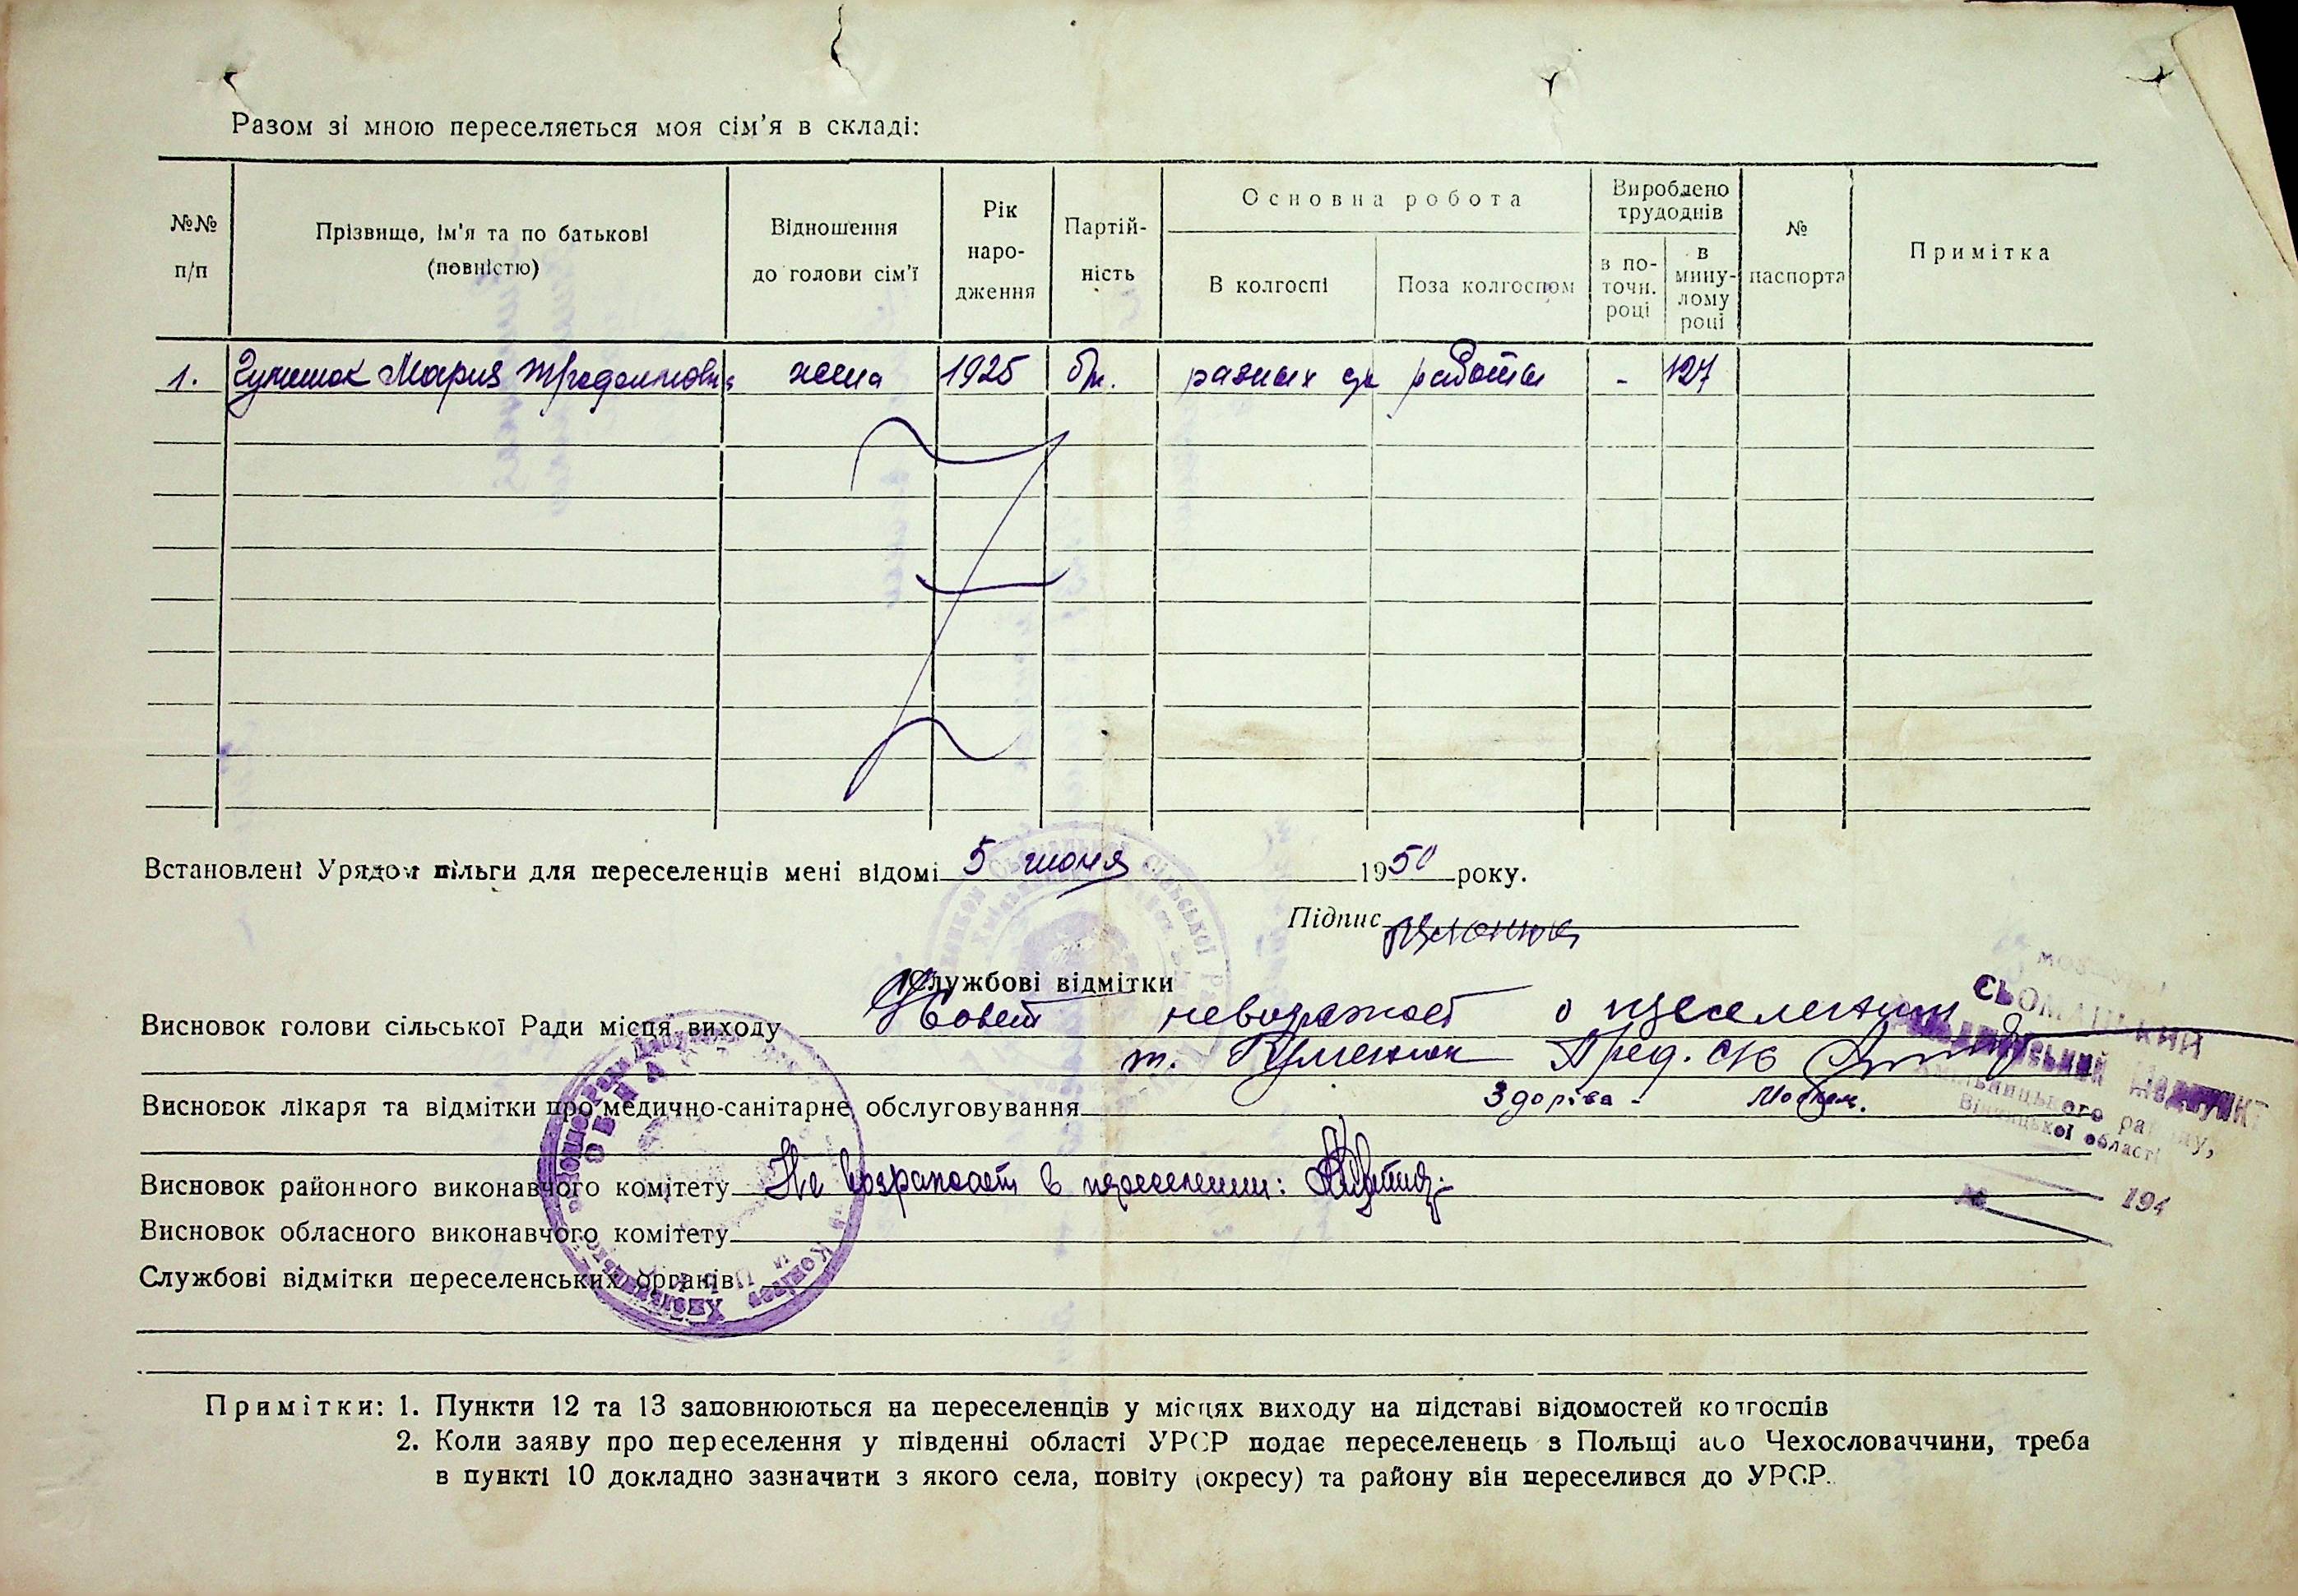 Разом зі мною переселяється моя сім'я в складі:
№№ п/п
Прізвище, ім'я та по батькові (повністю)
Відношення до голови сім'ї
Рік народження
Партійність
Основна робота
В колгоспі
Поза колгоспом
Вироблено трудоднів
в поточн. році
в минулому році
№ паспорта
Примітка
1. Мария жена 1925 бп. разных работы - 127
Встановлені Урядом пільги для переселенців мені відомі 5 июня 1950 року.
Підпис
Службові відмітки
Висновок голови сільської Ради місця виходу С/Совет невозражает о переселении
т. Пред. с/с
Висновок лікаря та відмітки про медично-санітарне обслуговування Здорова -
Висновок районного виконавчого комітету Не возражает в переселении:
Висновок обласного виконавчого комітету
Службові відмітки переселенських органів
СЬОМАЦЬКИЙ
медпункт
Хмільницького району,
Вінницької області
№ 194
Примітки: 1. Пункти 12 та 13 заповнюються на переселенців у місцях виходу на підставі відомостей колгоспів
2. Коли заяву про переселення у південні області УРСР подає переселенець з Польщі або Чехословаччини, треба
в пункті 10 докладно зазначити з якого села, повіту (окресу) та району він переселився до УРСР.